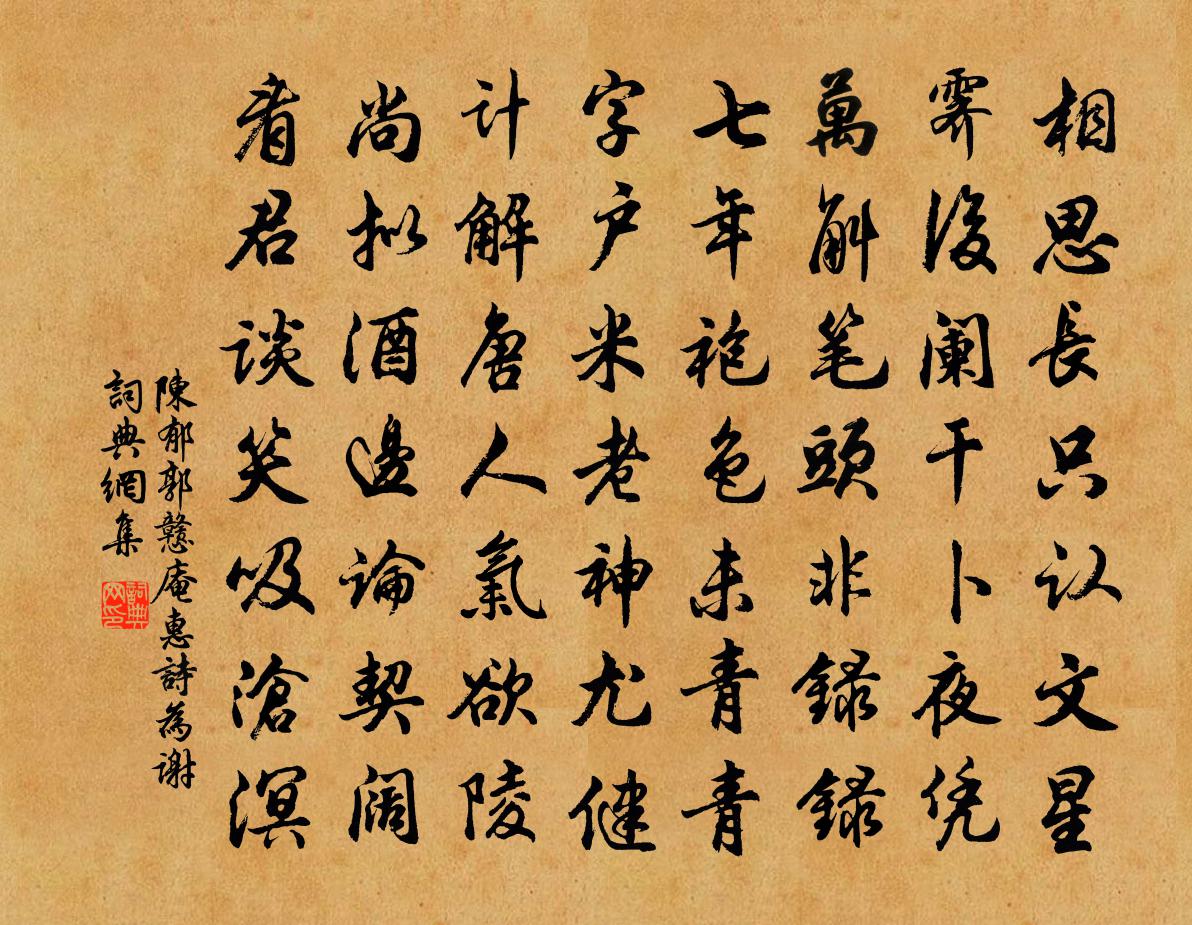 相思長只认文星
霁後阑干卜夜凭
萬斛笔頭非録録
七年袍色未青青
字户米老神尤健
计解唐人氣欲陵
尚拟酒邊論契阔
看君谈笑吸滄溟
陳郁郭戆庵惠詩為谢
詞典網集
詞典